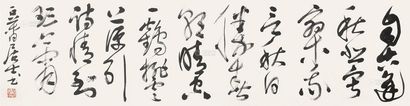 自古逢
秋悲寂
寥我
言秋日
勝春
朝晴空
一鶴排雲
上便引
詩情到
碧霄
居士